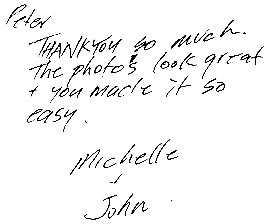 Peter
THANKyou so much.
The photo's look great
+ you made it so
easy.
Michelle
+
John.